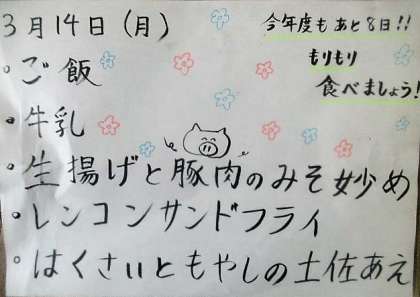 3月14日(月)
今年度もあと8日!!
もりもり
食べましょう!
・ご飯
・牛乳
・生揚げと豚肉のみそ炒め
・レンコンサンドフライ
・はくさいともやしの土佐あえ